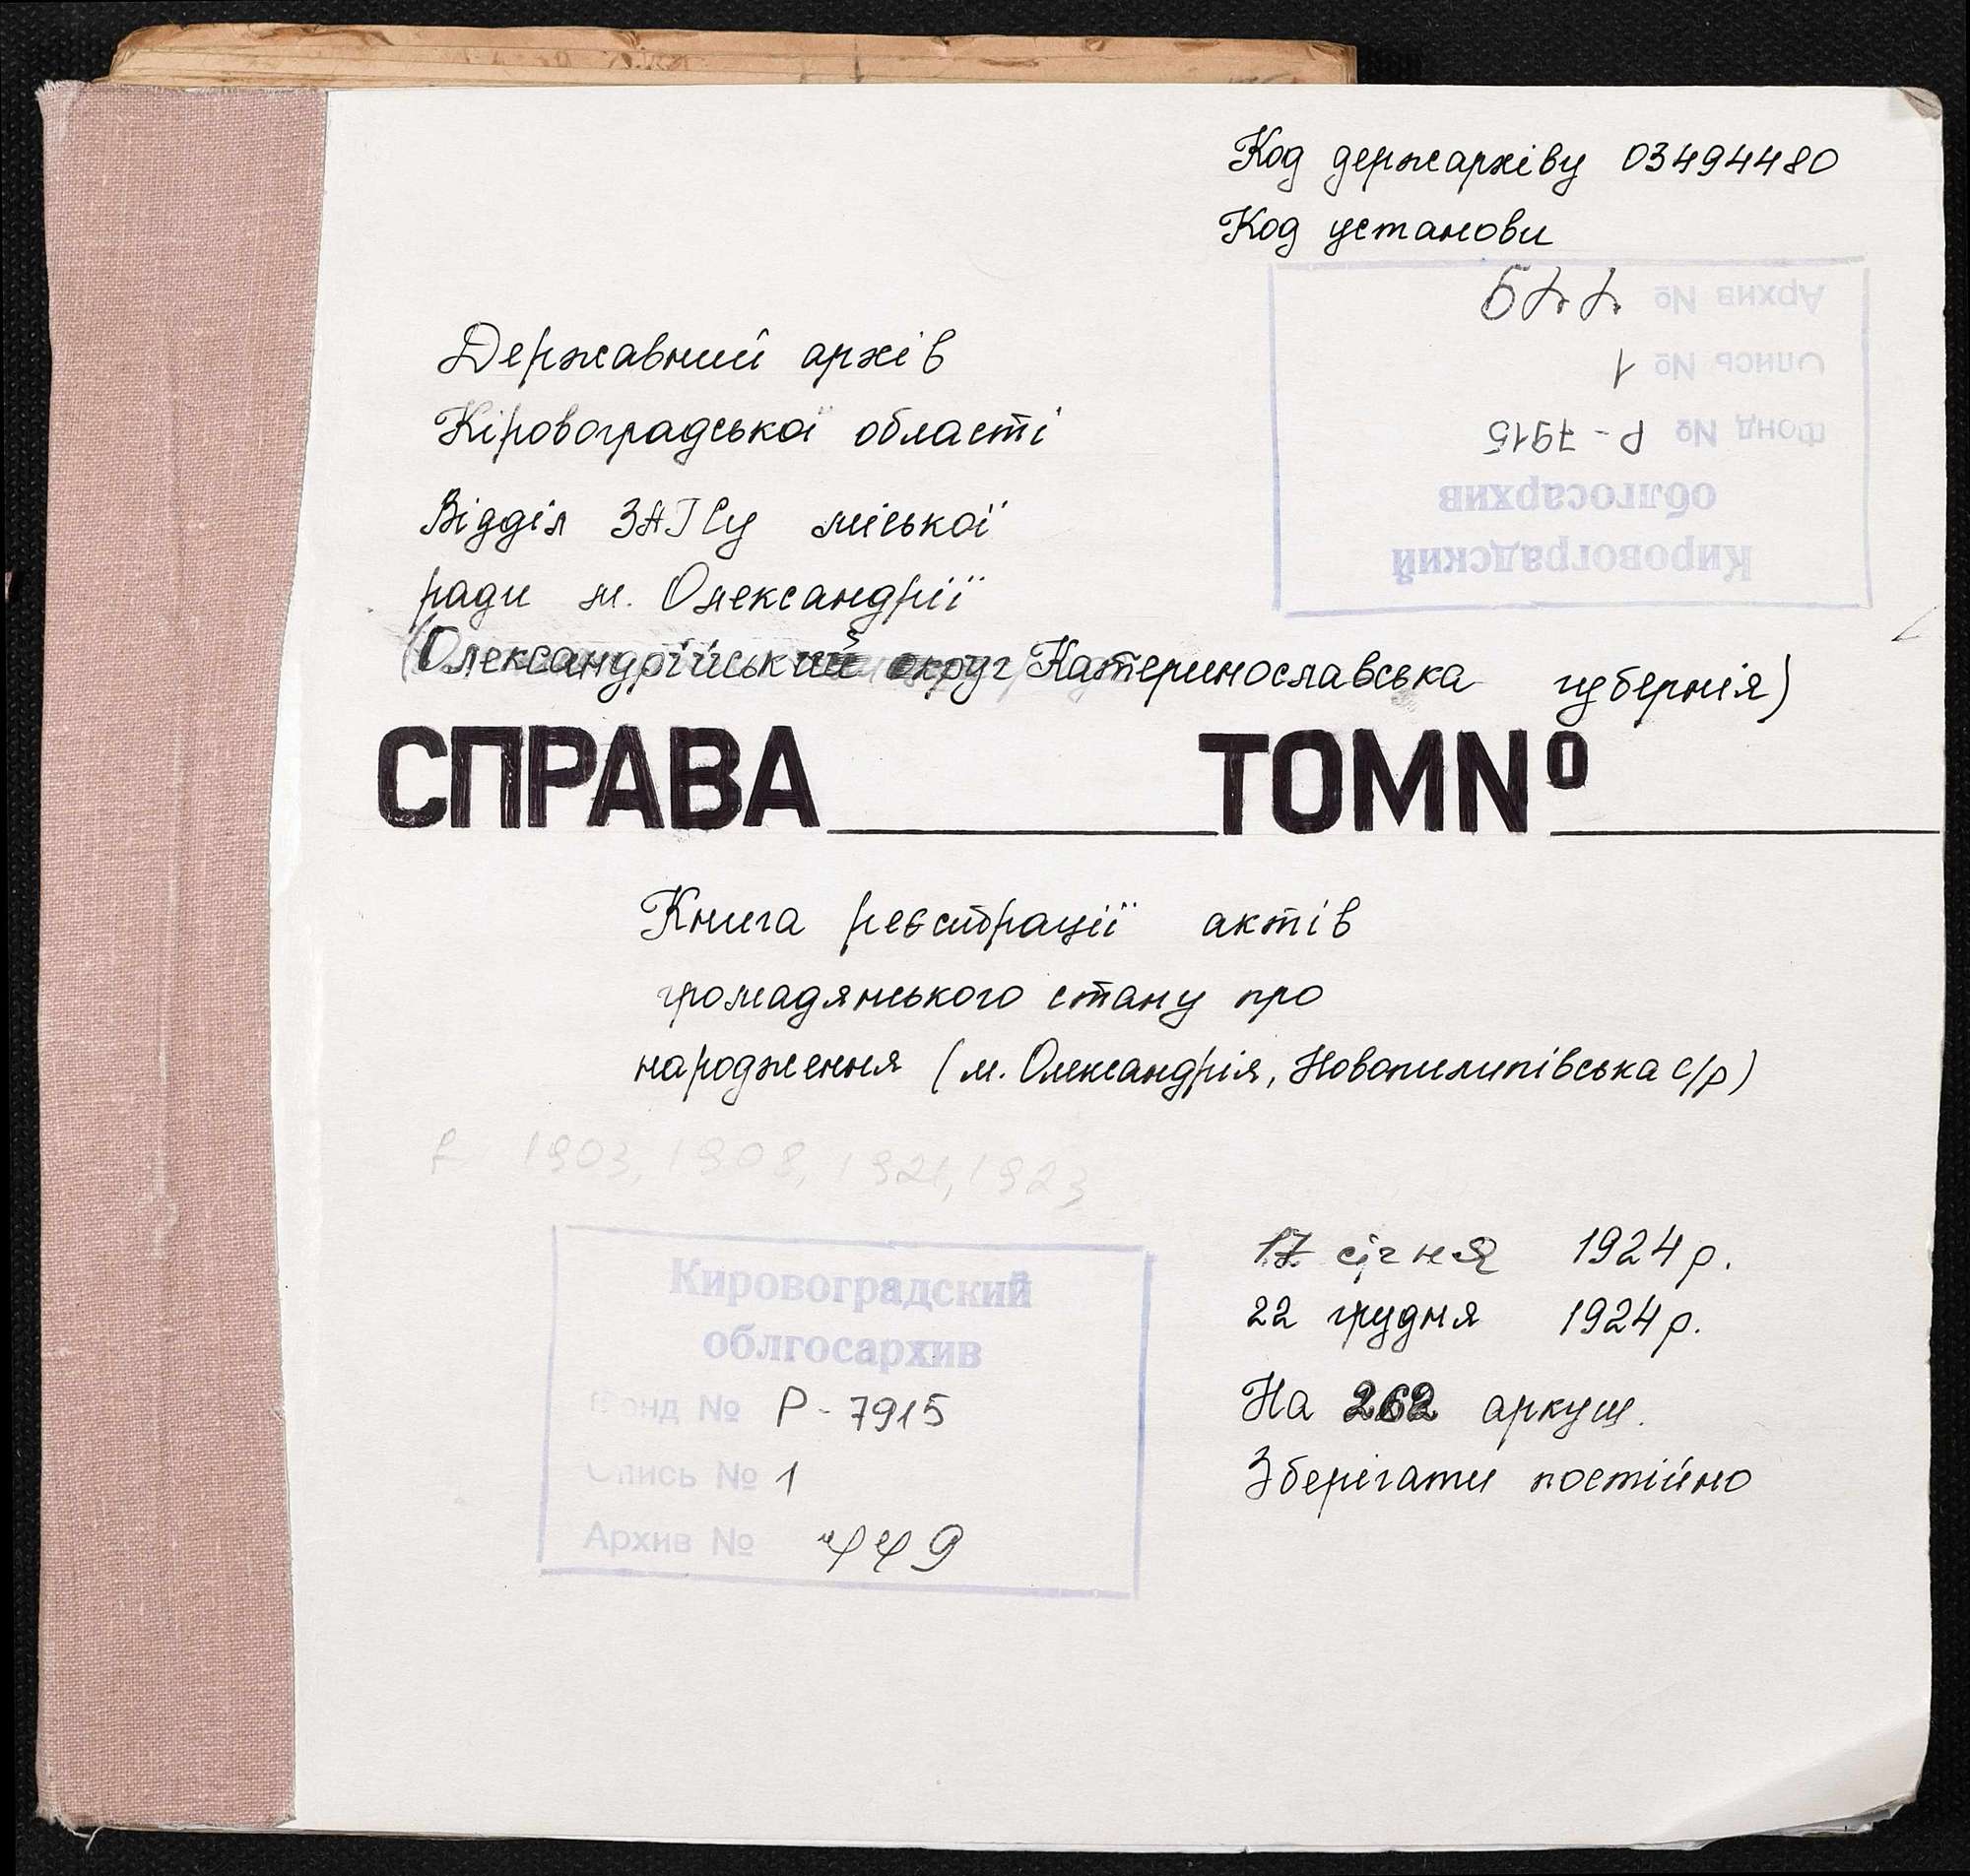 Код держархіву 03494480
Код установи
Архив № 449
Опись № 1
Фонд № Р-7915
облгосархив
Кировоградский
Державний архів
Кіровоградської області
Відділ ЗАГСу міської
ради м. Олександрії
(Олександрійський округ Катеринославська губернія)
СПРАВА ТОМ№
Книга реєстрації актів
громадянського стану про
народження (м. Олександрія, Новопилипівська с/р)
1903, 1908, 1921, 1923
17 січня 1924 р.
22 грудня 1924 р.
На 262 аркуш.
Зберігати постійно
Кировоградский
облгосархив
Фонд № Р-7915
Опись № 1
Архив № 449